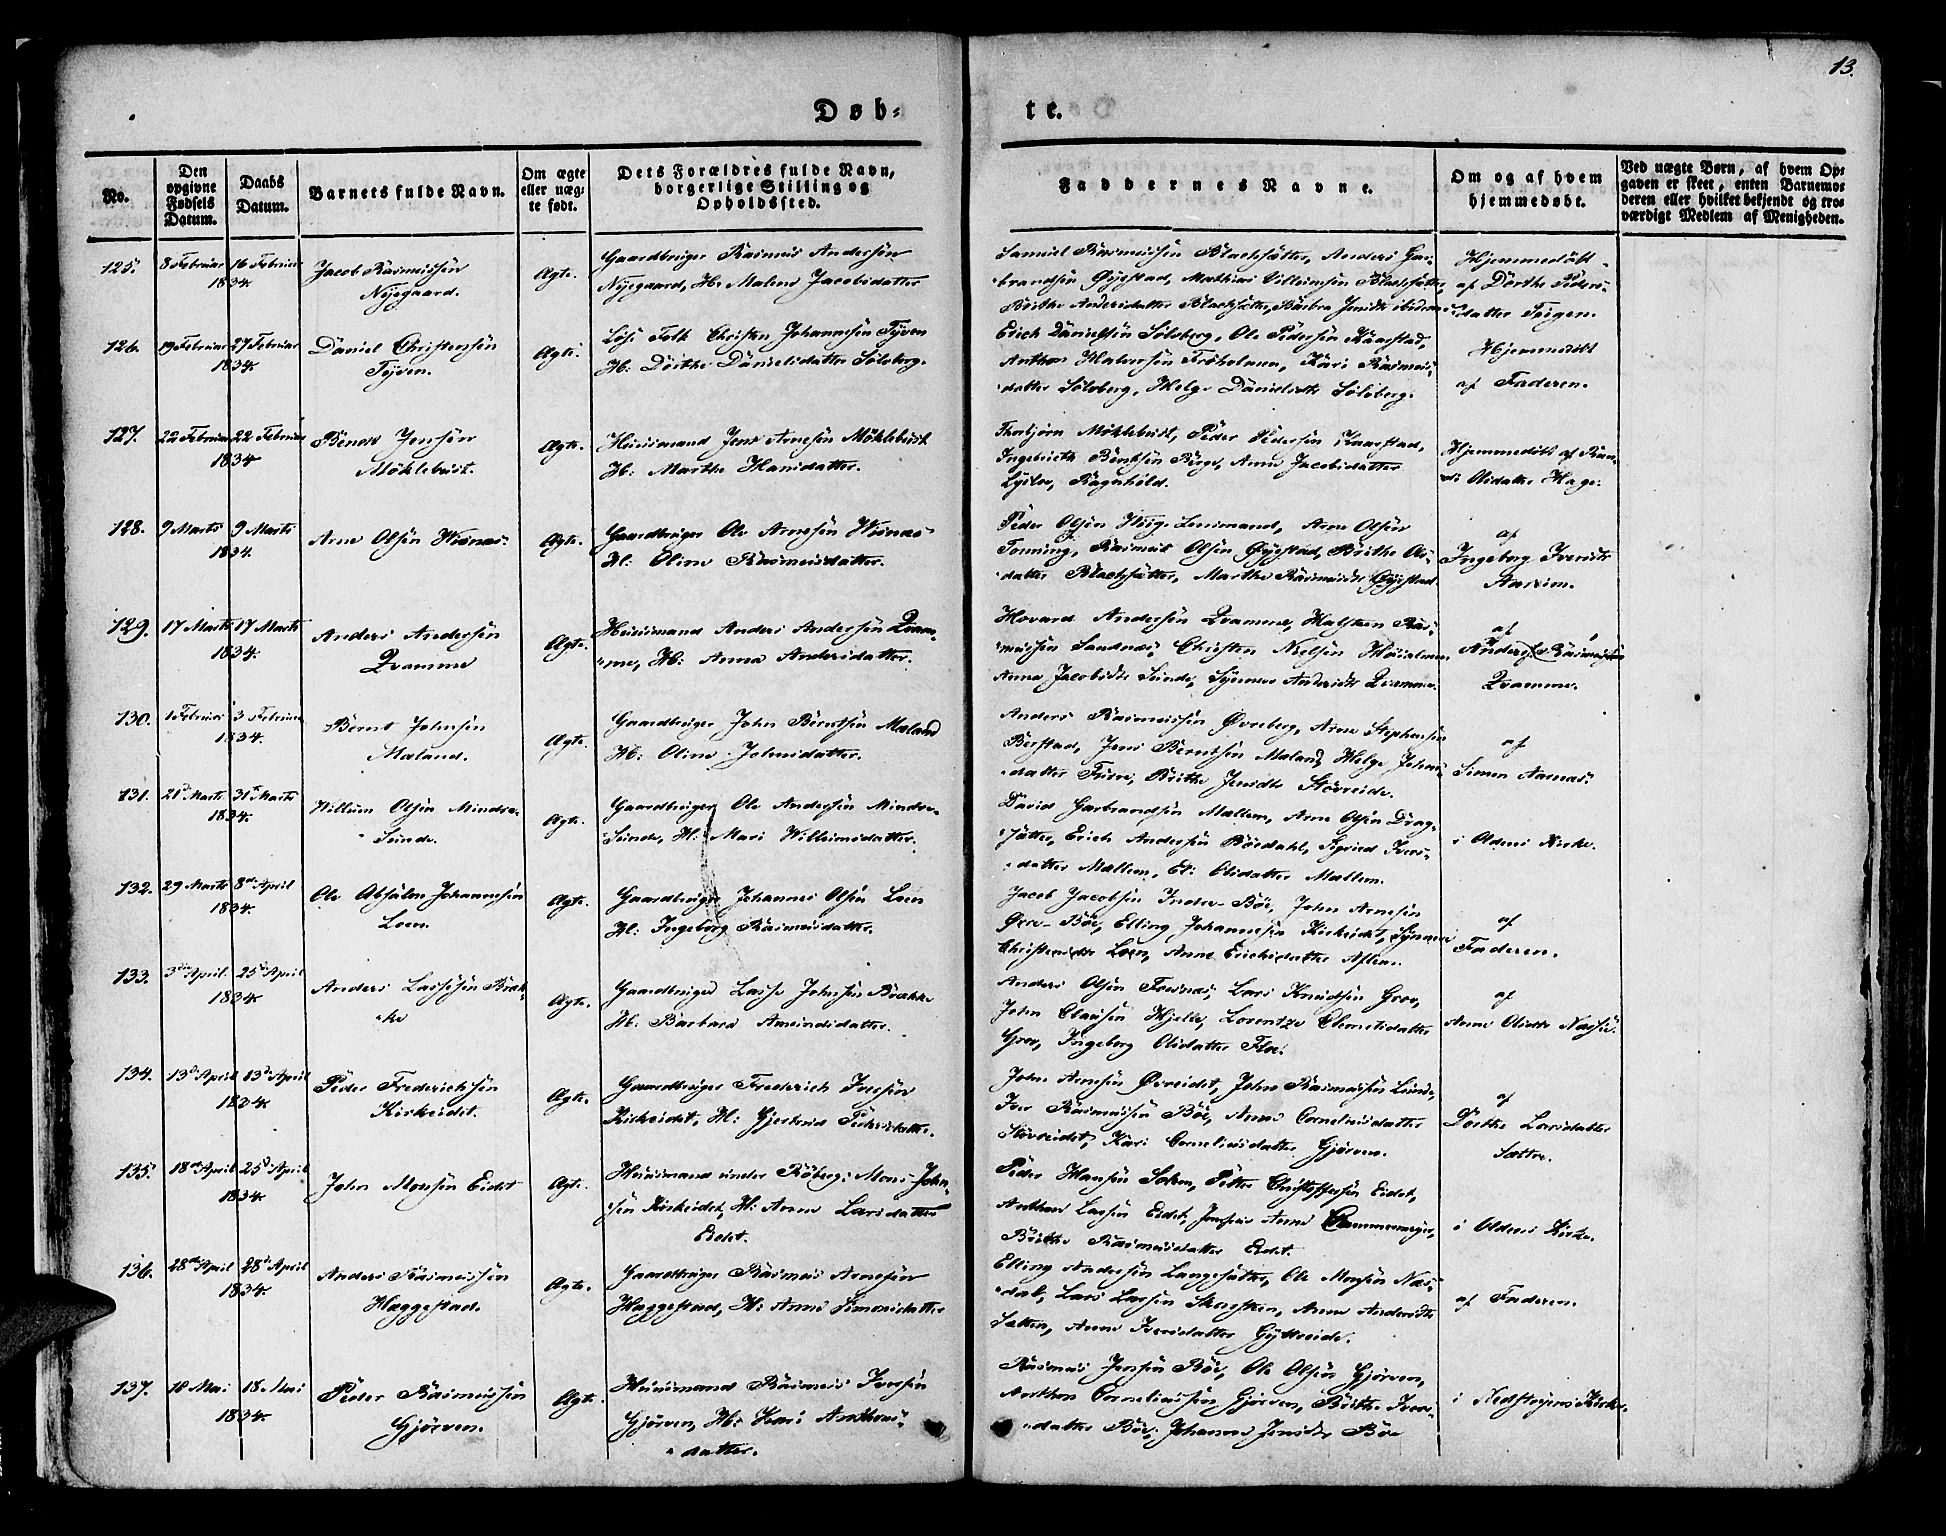 13.
Døb-
te.
No.
Den opgivne Fødsels Datum.
Daabs Datum.
Barnets fulde Navn.
Om ægte eller uæg-te født.
Dets Forældres fulde Navn, borgerlige Stilling og Opholdssted.
Faddernes Navne.
Om og af hvem hjemmedøbt.
Ved uægte Børn, af hvem Op-
gaven er skeet, enten Barnemo-
deren eller hvilket bekjendt og tro-
værdigt Medlem af Menigheden.
125. 8 Februar 16 Februar 1834.
Jacob Rasmussen
Nyegaard.
Ægte.
Gaardbruger Rasmus Andersen
Nyegaard, H: Malene Jacobsdatter
Samuel Rasmussen Blachsætter, Anders Gar-
brandsen Øyestad, Mathias Villumsen Blachsætter,
Brithe Andersdatter Blachsætter, Barbra Jensdtr
Hjemmedøbt
af Dorthe Peders-
datter Teigen.
126. 19 Februar 27 Februar 1834.
Daniel Christensen
Tyven.
Ægte.
Løse Folk Christen Johannesen Tyven
H: Dorthe Danielsdatter Solsberg.
Erich Danielsen Solsberg, Ole Pedersen Kaarstad,
Anthon Frøholmen, Kari Rasmus-
datter Solsberg, Helge Danielsdtr Solsberg.
Hjemmedøbt
af Faderen.
127. 22 Februar 22 Februar 1834
Bendt Jensen
Møklebust.
Ægte.
Huusmand Jens Arnesen Møklebust
H: Marthe Hansdatter.
Thorbjørn Møklebust, Peder Pedersen Kaarstad,
Ingebrigth Bentsen Berge, Anne Jacobsdatter
Ragnhild.
Hjemmedøbt af Ran-
di Olsdatter Hage.
128. 9 Marts 9 Marts 1834.
Arne Olsen Wisnæs.
Ægte.
Gaardbruger Ole Arnesen Wisnæs
H: Oline Rasmusdatter.
Peder Olsen Lensmand, Arne Olsen
Tonning, Rasmus Olsen Øyestad, Brithe Ols-
datter Blachsætter, Marthe Rasmusdtr Øyestad
af
Ingeborg Iversdtr
Aarsim.
129. 17 Marts 17 Marts 1834.
Anders Andersen
Qvamme
Ægte.
Huusmand Anders Andersen Qvam-
me, H: Anna Andersdatter.
Hovard Andersen Qvamme, Halsteen Ras-
mussen Sandnes, Christen Nielsen
Anne Jacobsdtr Sunde, Synneve Andersdtr Qvamme.
af
Anders Rasmussen
Qvamme.
130. 1 Februar 3 Februar 1834.
Bernt Johnsen
Maland.
Ægte.
Gaardbruger John Berntsen Maland
H: Oline Johnsdatter.
Anders Rasmussen Øvreberg, Arne Stephensen
Berstad, Jens Berntsen Maland, Helge Johns-
datter Brithe Jensdtr Støvreide.
af
Simon Aarnæs.
131. 21 Marts 31 Marts 1834.
Willum Olsen Mindre-
Sunde.
Ægte.
Gaardbruger Ole Andersen Mindre-
Sunde, H: Mari Willumsdatter.
David Garbrandsen Mællem, Arne Olsen Drag-
sætter, Erich Andersen Bødahl, Sigrid Ivers-
datter Mællem, El: Olsdatter Mællem.
i Oldens Kirke.
132. 29 Marts 8de April 1834.
Ole Absalon Johannesen
Loen.
Ægte.
Gaardbruger Johannes Olsen Loen
H: Ingeborg Rasmusdatter.
Jacob Jacobsen Indre-Bøe, John Arnesen
Øvre-Bøe, Elling Johannesen Kirkeidet, Synneve
Christensdtr Loen, Anne Erichsdatter Aflem.
af
Faderen.
133. 3die April. 25 April 1834
Anders Lassesen Bræk-
ke
Ægte.
Gaardbruger Lasse Johnsen Brække
H: Barbara Amundsdatter.
Anders Olsen Fosnæs, Lars Knudsen Grov,
John Clausen Hjelle, Lorentze Clemetsdatter
Grov, Ingeborg Olsdatter Floe.
af
Anne Olsdtr
134. 13 April 13 April 1834
Peder Frederichsen
Kirkeidet.
Ægte.
Gaardbruger Frederich Iversen
Kirkeidet, H: Gjertrud Pedersdatter.
John Arnesen Øvreidet, John Rasmussen Lund,
Iver Rasmussen Bøe, Anne Corneliusdatter
Støvreidet, Kari Corneliusdatter Gjørven.
af
Dorthe Larsdatter
Sættre.
135. 18 April 25 April 1834
John Monsen Eidet
Ægte.
Huusmand under Røberg: Mons John-
sen Kirkeidet, H: Anne Larsdatter
Eidet.
Peder Hansen Solem, Petter Christophersen Eidet,
Anthon Larsen Eidet, Jomfrue Anne Cammermeyer,
Brithe Rasmusdatter Eidet.
i Oldens Kirke.
136. 28 April 28 April 1834.
Anders Rasmussen
Hæggestad.
Ægte.
Gaardbruger Rasmus Arnesen
Hæggestad, H: Anne Simonsdatter
Elling Andersen Langesætter, Ole Monsen Næs-
dal, Lars Larsen Skorsteen, Anne Andersdtr
Sætten, Anne Iversdatter Gytreeide.
af Faderen.
137. 18 Mai 18 Mai 1834
Peder Rasmussen
Gjørven.
Ægte.
Huusmand Rasmus Iversen
Gjørven, H: Kari Anthons-
datter.
Rasmus Jensen Bøe, Ole Olsen Gjørven,
Anthon Corneliussen Gjørven, Brithe Ivers-
datter Bøe, Johanne Jensdtr Bøe
i Nedstryens Kirke.